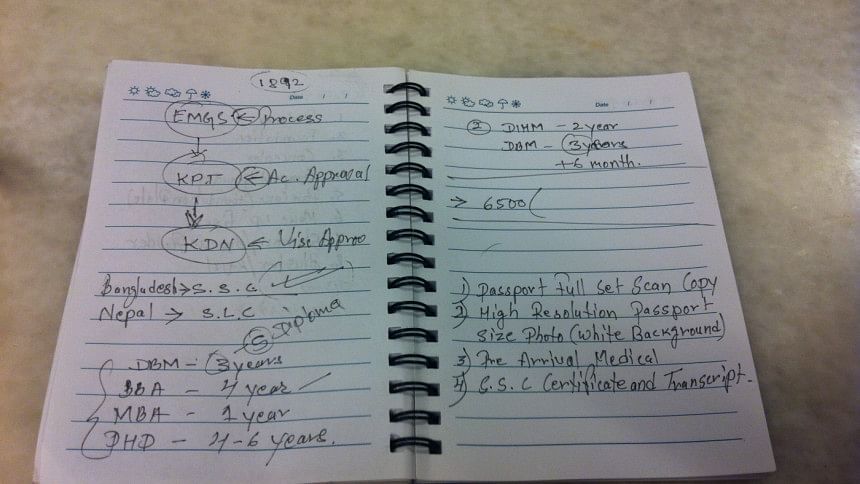 1892
Date / /
EMGS ← Process
KPT ← Ac. Appraval
KDN ← Vise Approo
Bangladesh → S.S.C
Nepal → S.L.C
5 Diploma
DBM - 3 years
BBA - 4 year
MBA - 1 year
PHD - 4-6 years.
Date / /
2 DIHM - 2 year
DBM - 3 years
+6 month.
→ 6500(
1) Passport Full Set Scan Copy
2) High Resolution Passport
Size Photo (White Background)
3) Pre Arrival Medical
4) S.S.C Certificate and Transcript.